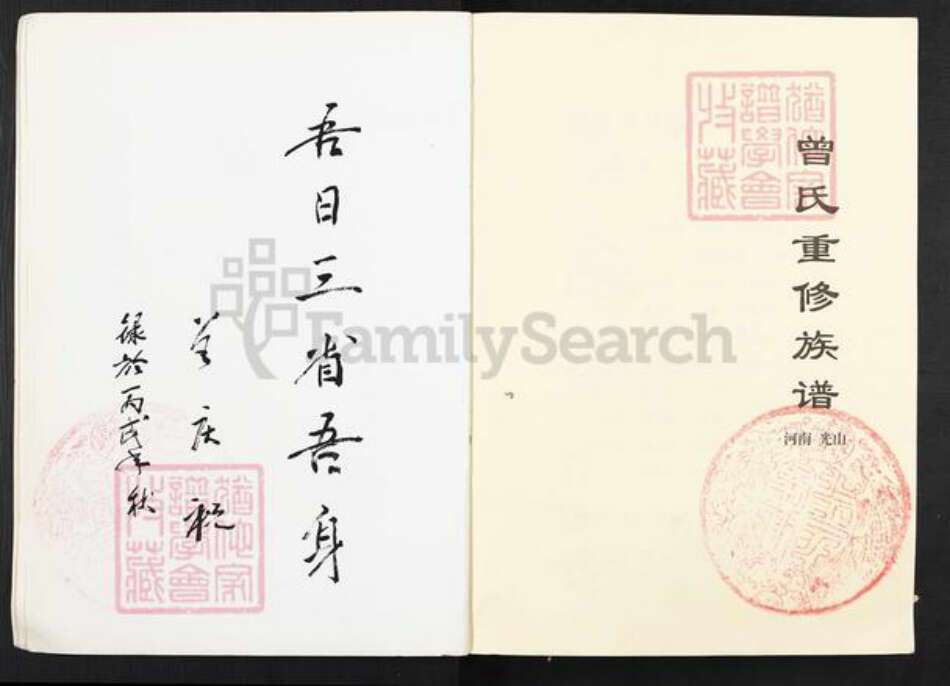 曾氏重修族谱
河南 光山
吾日三省吾身
录於丙戌年秋
家譜學會收藏
家譜學會收藏
FamilySearch